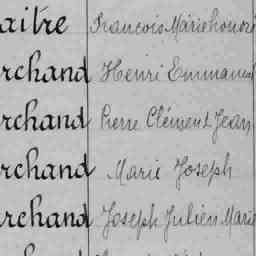 aitre François Marie honoré
rchand Henri Emmanuel
rchand Pierre Clément Jean
rchand Marie Joseph
rchand Joseph Julien Marie